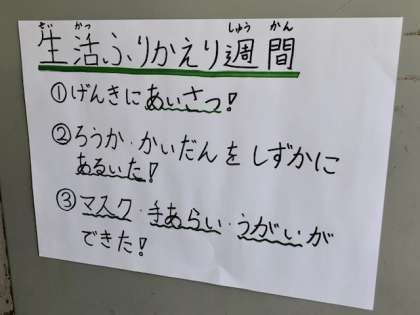 せい かつ しゅう かん
生活ふりかえり週間
①げんきにあいさつ!
②ろうか・かいだんをしずかに
あるいた!
③マスク・手あらい・うがいが
できた!